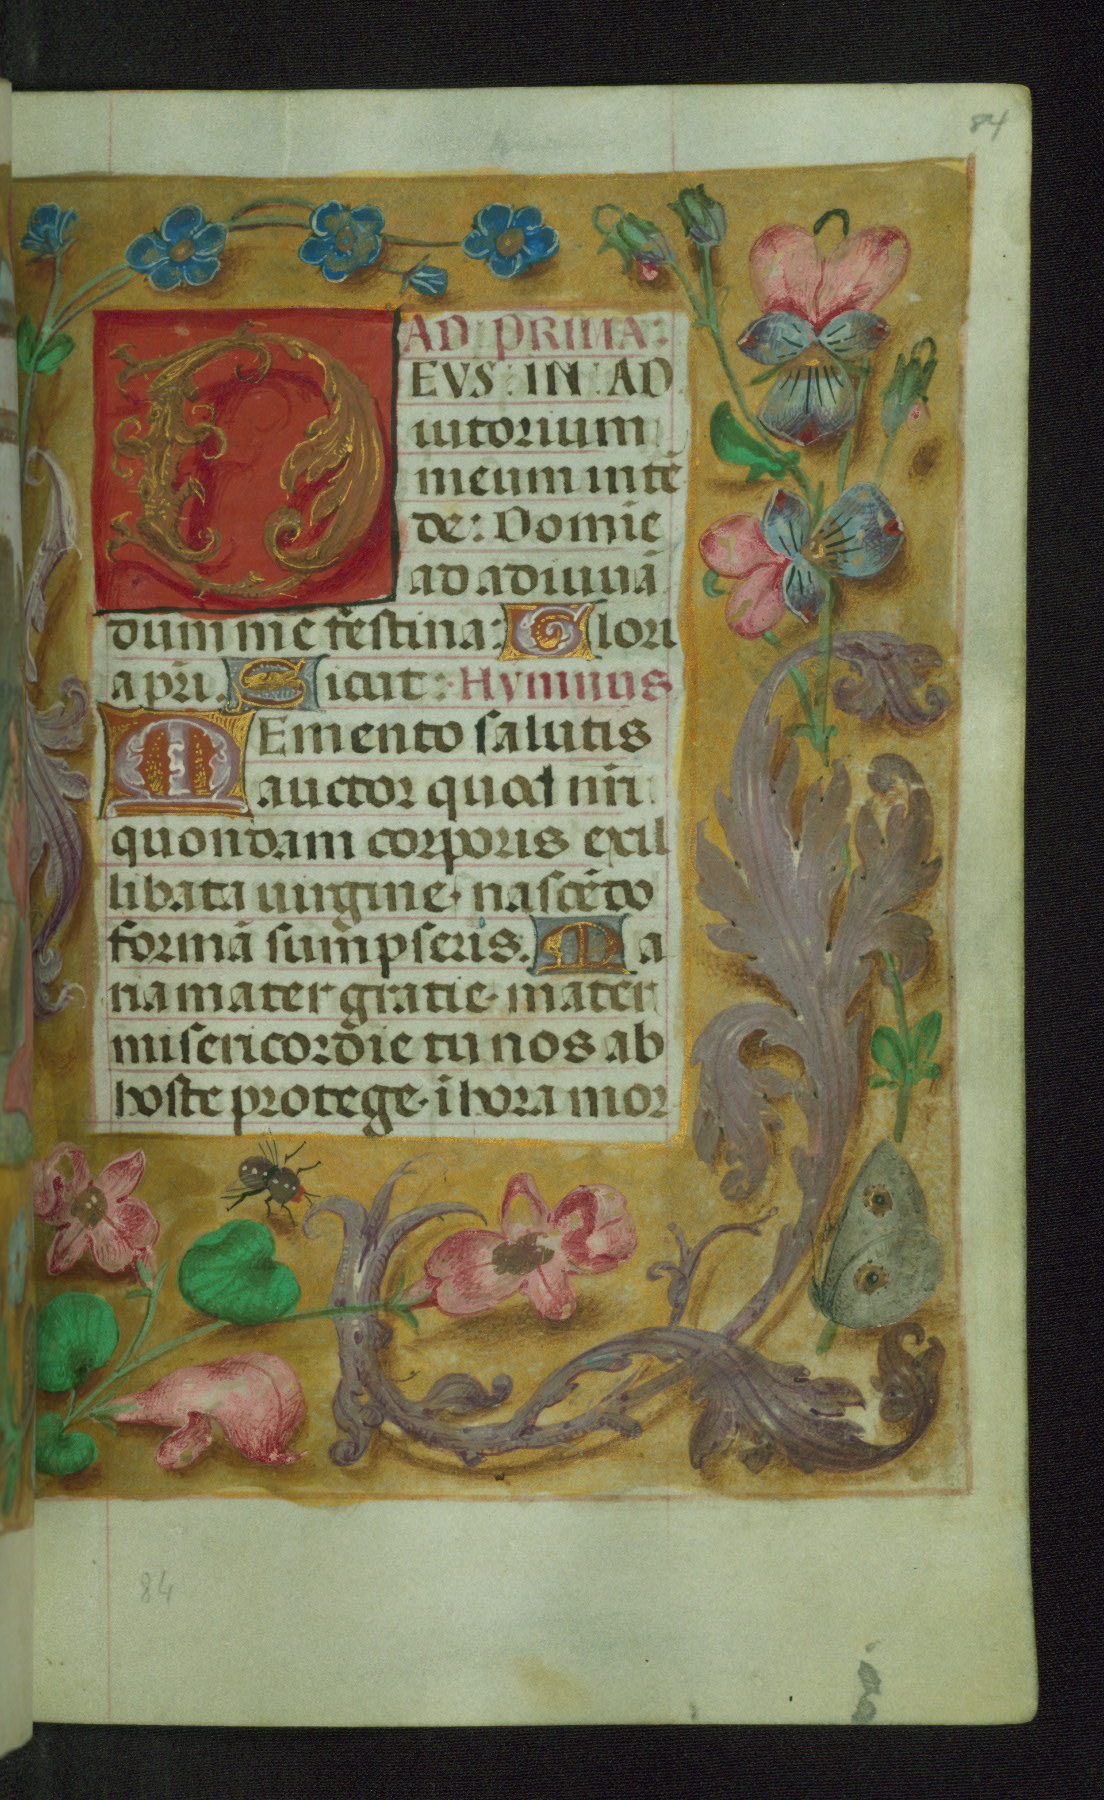 84
AD PRIMA:
DEVS: IN: AD
iutorium
meum intē
de: Domīe
ad adiuuā
dum me festina: Glori
a pr̄i. Sicut: Hymnus
Memento salutis
auctor quod nr̄i
quondam corporis ex il
libata uirgine. nascēdo
formā sumpseris. Ma
ria mater gratie. mater
misericordie tu nos ab
hoste protege. ī hora mor
84